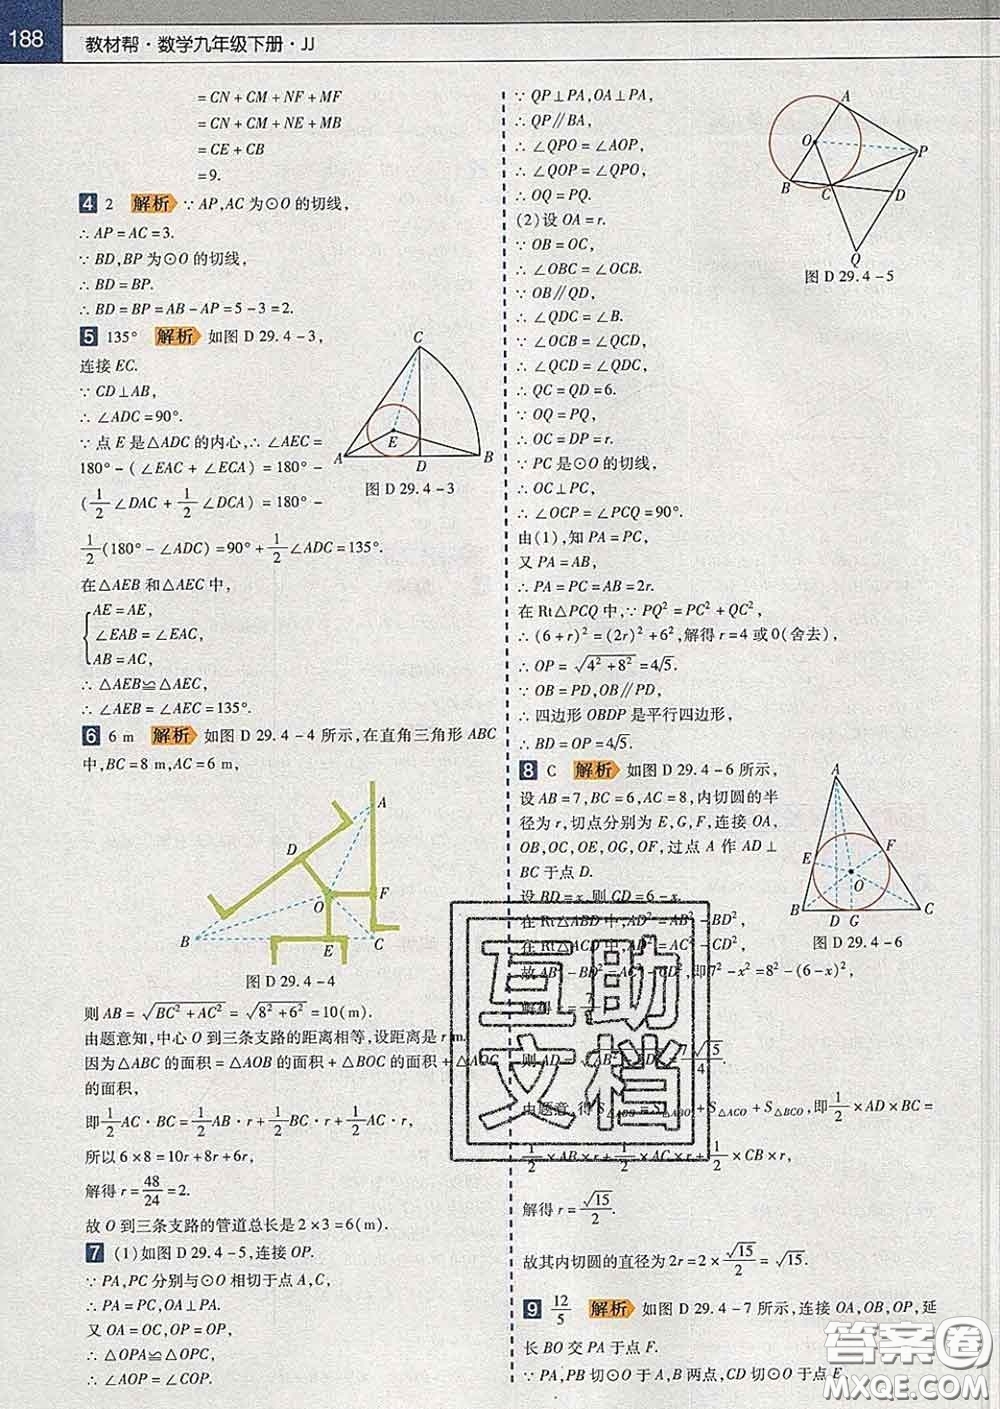 188
教材帮·数学九年级下册·JJ
= CN + CM + NF + MF
= CN + CM + NE + MB
= CE + CB
= 9.
4 2 解析 ∵ AP, AC 为⊙O 的切线,
∴ AP = AC = 3.
∵ BD, BP 为⊙O 的切线,
∴ BD = BP.
∴ BD = BP = AB - AP = 5 - 3 = 2.
5 135° 解析 如图 D 29.4-3,
连接 EC.
∵ CD⊥AB,
∴ ∠ADC = 90°.
∵ 点 E 是△ADC 的内心, ∴ ∠AEC =
180° - (∠EAC + ∠ECA) = 180° -
(1/2 ∠DAC + 1/2 ∠DCA) = 180° -
1/2 (180° - ∠ADC) = 90° + 1/2 ∠ADC = 135°.
在△AEB 和△AEC 中,
AE = AE,
∠EAB = ∠EAC,
AB = AC,
∴ △AEB≌△AEC,
∴ ∠AEB = ∠AEC = 135°.
C
E
A
D
B
图 D 29.4-3
6 6 m 解析 如图 D 29.4-4 所示,在直角三角形 ABC
中, BC = 8 m, AC = 6 m,
A
D
O
F
B
E
C
图 D 29.4-4
则 AB = √(BC² + AC²) = √(8² + 6²) = 10(m).
由题意知,中心 O 到三条支路的距离相等,设距离是 r m.
因为△ABC 的面积 = △AOB 的面积 + △BOC 的面积 + △AOC
的面积,
即 1/2 AC·BC = 1/2 AB·r + 1/2 BC·r + 1/2 AC·r,
所以 6×8 = 10r + 8r + 6r,
解得 r = 48/24 = 2.
故 O 到三条支路的管道总长是 2×3 = 6(m).
7 (1)如图 D 29.4-5,连接 OP.
∵ PA, PC 分别与⊙O 相切于点 A, C,
∴ PA = PC, OA⊥PA.
又 OA = OC, OP = OP,
∴ △OPA≌△OPC,
∴ ∠AOP = ∠COP.
∵ QP⊥PA, OA⊥PA,
∴ QP∥BA,
∴ ∠QPO = ∠AOP,
∴ ∠QOP = ∠QPO,
∴ OQ = PQ.
(2)设 OA = r.
∵ OB = OC,
∴ ∠OBC = ∠OCB.
∵ OB∥QD,
∴ ∠QDC = ∠B.
∵ ∠OCB = ∠QCD,
∴ ∠QCD = ∠QDC,
∴ QC = QD = 6.
∵ OQ = PQ,
∴ OC = DP = r.
∵ PC 是⊙O 的切线,
∴ OC⊥PC,
∴ ∠OCP = ∠PCQ = 90°.
由(1),知 PA = PC,
又 PA = AB,
∴ PA = PC = AB = 2r.
在 Rt△PCQ 中, ∵ PQ² = PC² + QC²,
∴ (6 + r)² = (2r)² + 6²,解得 r = 4 或 0(舍去),
∴ OP = √(4² + 8²) = 4√5.
∵ OB = PD, OB∥PD,
∴ 四边形 OBDP 是平行四边形,
∴ BD = OP = 4√5.
A
O
P
B
C
D
Q
图 D 29.4-5
8 C 解析 如图 D 29.4-6 所示,
设 AB = 7, BC = 6, AC = 8,内切圆的半
径为 r,切点分别为 E, G, F,连接 OA,
OB, OC, OE, OG, OF,过点 A 作 AD⊥
BC 于点 D.
设 BD = x,则 CD = 6 - x.
在 Rt△ABD 中, AD² = AB² - BD²,
在 Rt△ACD 中, AD² = AC² - CD²,
故 AB² - BD² = AC² - CD²,即 7² - x² = 8² - (6 - x)²,
解得 x = 7/
则 AD = √(AB² - BD²) = 7√15/4.
由题意,得 S△ABC = S△ABO + S△ACO + S△BCO,即 1/2 × AD × BC =
1/2 × AB × r + 1/2 × AC × r + 1/2 × CB × r,
解得 r = √15/2.
故其内切圆的直径为 2r = 2 × √15/2 = √15.
A
E
F
O
B
D
G
C
图 D 29.4-6
9 12/5 解析 如图 D 29.4-7 所示,连接 OA, OB, OP,延
长 BO 交 PA 于点 F.
∵ PA, PB 切⊙O 于 A, B 两点, CD 切⊙O 于点 E,
互助
文档
答案圈
MXQE.COM